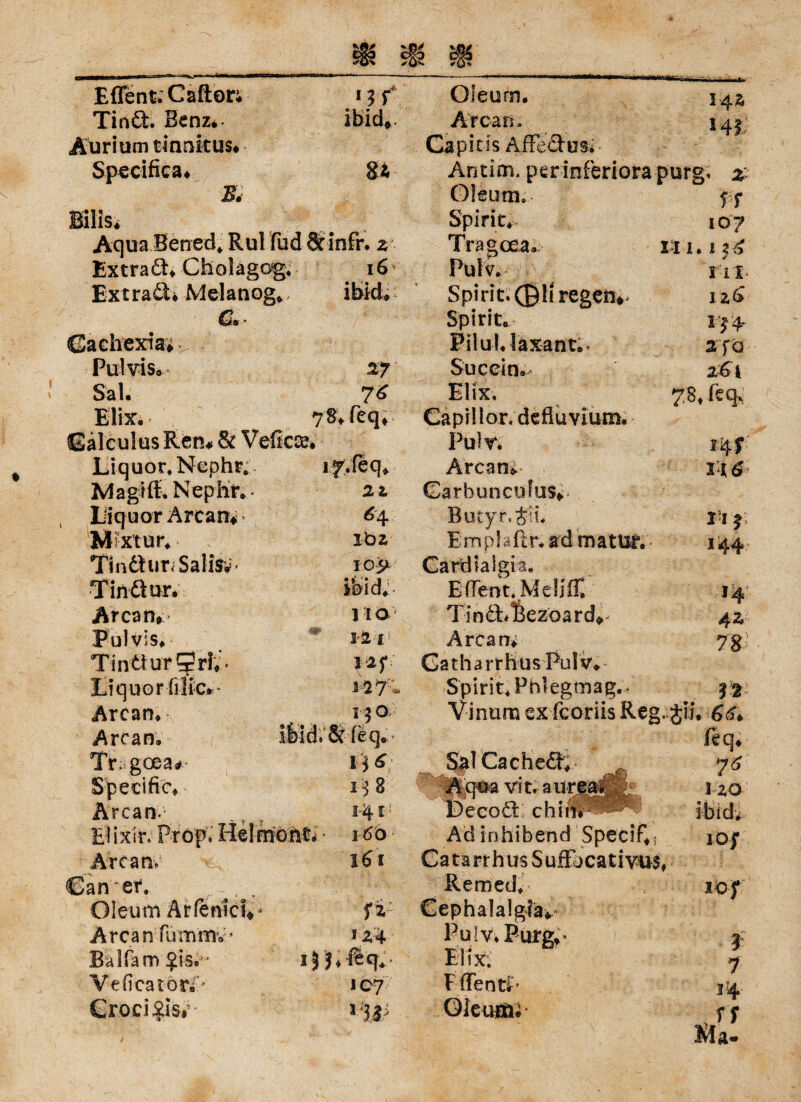 Eſſent. Caſtor. 135
Tinct. Benz. ibid.
Aurium tinnitus.
Specifica. 82
B.
Bilis.
Aqua Bened. Rul ſud & infr. 2
Extract. Cholagog. 16
Extract. Melanog. ibid.
C.
Cachexia.
Pulvis. 27
Sal. 76
Elix. 78. ſeq.
Calculus Ren. & Veſicæ.
Liquor. Nephr. 17. ſeq.
Magiſt. Nephr. 22
Liquor Arcan. 64
Mixtur. 102
Tinctur. Salis 109
Tinctur. ibid.
Arcan. 110
Pulvis. 121
Tinctur 🜿ri. 125
Liquor ſilic. 127
Arcan. 130
Arcan. ibid. & ſeq.
Tragoea. 136
Specific. 138
Arcan. 141
Elixir. Prop. Helmont. 160
Arcan. 161
Cancer.
Oleum Arſenici. 52
Arcan ſumm. 124
Balſam ♃is. 133. ſeq.
Veſicator. 107
Croci ♃is.
Oleum. 142
Arcan. 143
Capitis Affectus.
Antim. per inferiora purg. 2
Oleum. 55
Spirit. 107
Tragoea. 111. 136
Pulv. 111
Spirit. 🜕li regen. 126
Spirit. 134
Pilul. laxant. 250
Succin. 261
Elix. 78. ſeq.
Capillor. defluvium.
Pulv. 145
Arcan. 116
Carbunculus.
Butyr. ♁ii. 113
Emplaſtr. ad matur. 144
Cardialgia.
Eſſent. Meliſſ. 14
Tinct. Bezoard. 42
Arcan. 78
Catharrhus Pulv.
Spirit. Phlegmag. 32
Vinum ex ſcoriis Reg. ♁ii. 66.
ſeq.
Sal Cachect. 76
Aqua vit. aurea. 120
Decoct chin. ibid.
Ad inhibend Specif. 105
Catarrhus Suffocativus,
Remed. 105
Cephalalgia.
Pulv. Purg. 3
Elix. 7
Eſſent. 14
Oleum. 55
Ma-